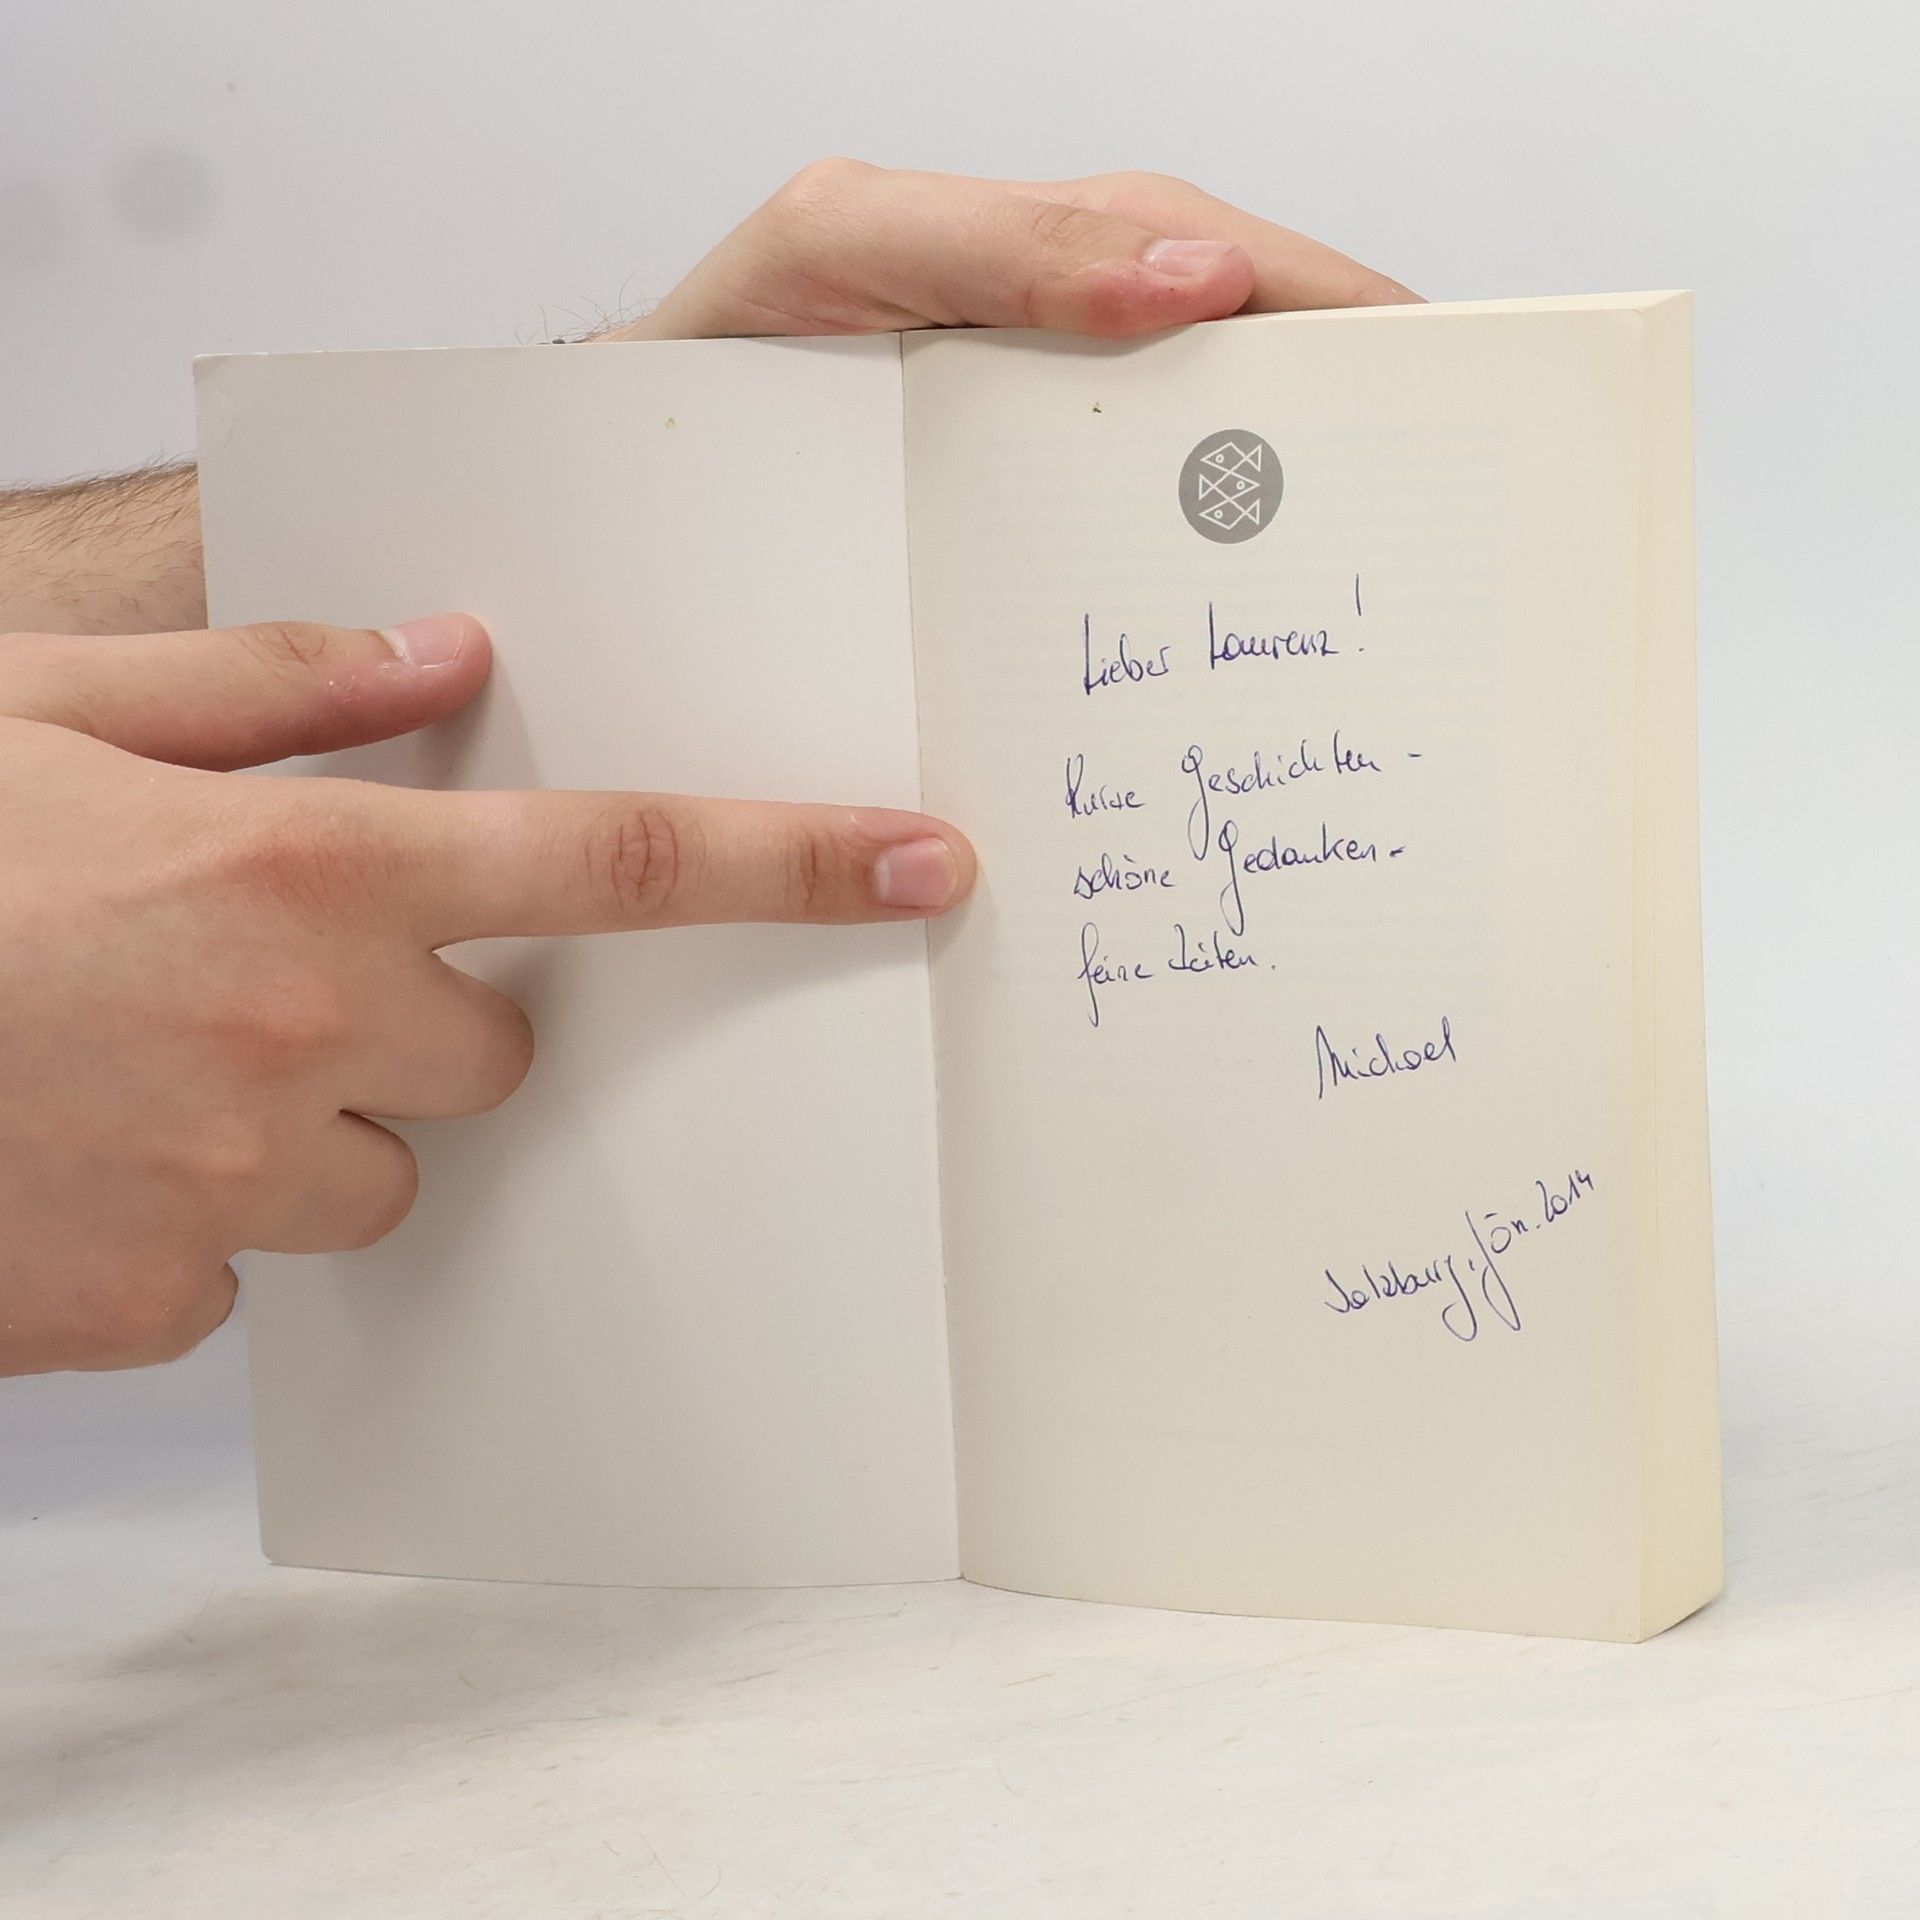 Lieber Laurenz!
Kurze Geschichten -
schöne Gedanken -
feine Zeiten.
Michael
Salzburg, Jän. 2014